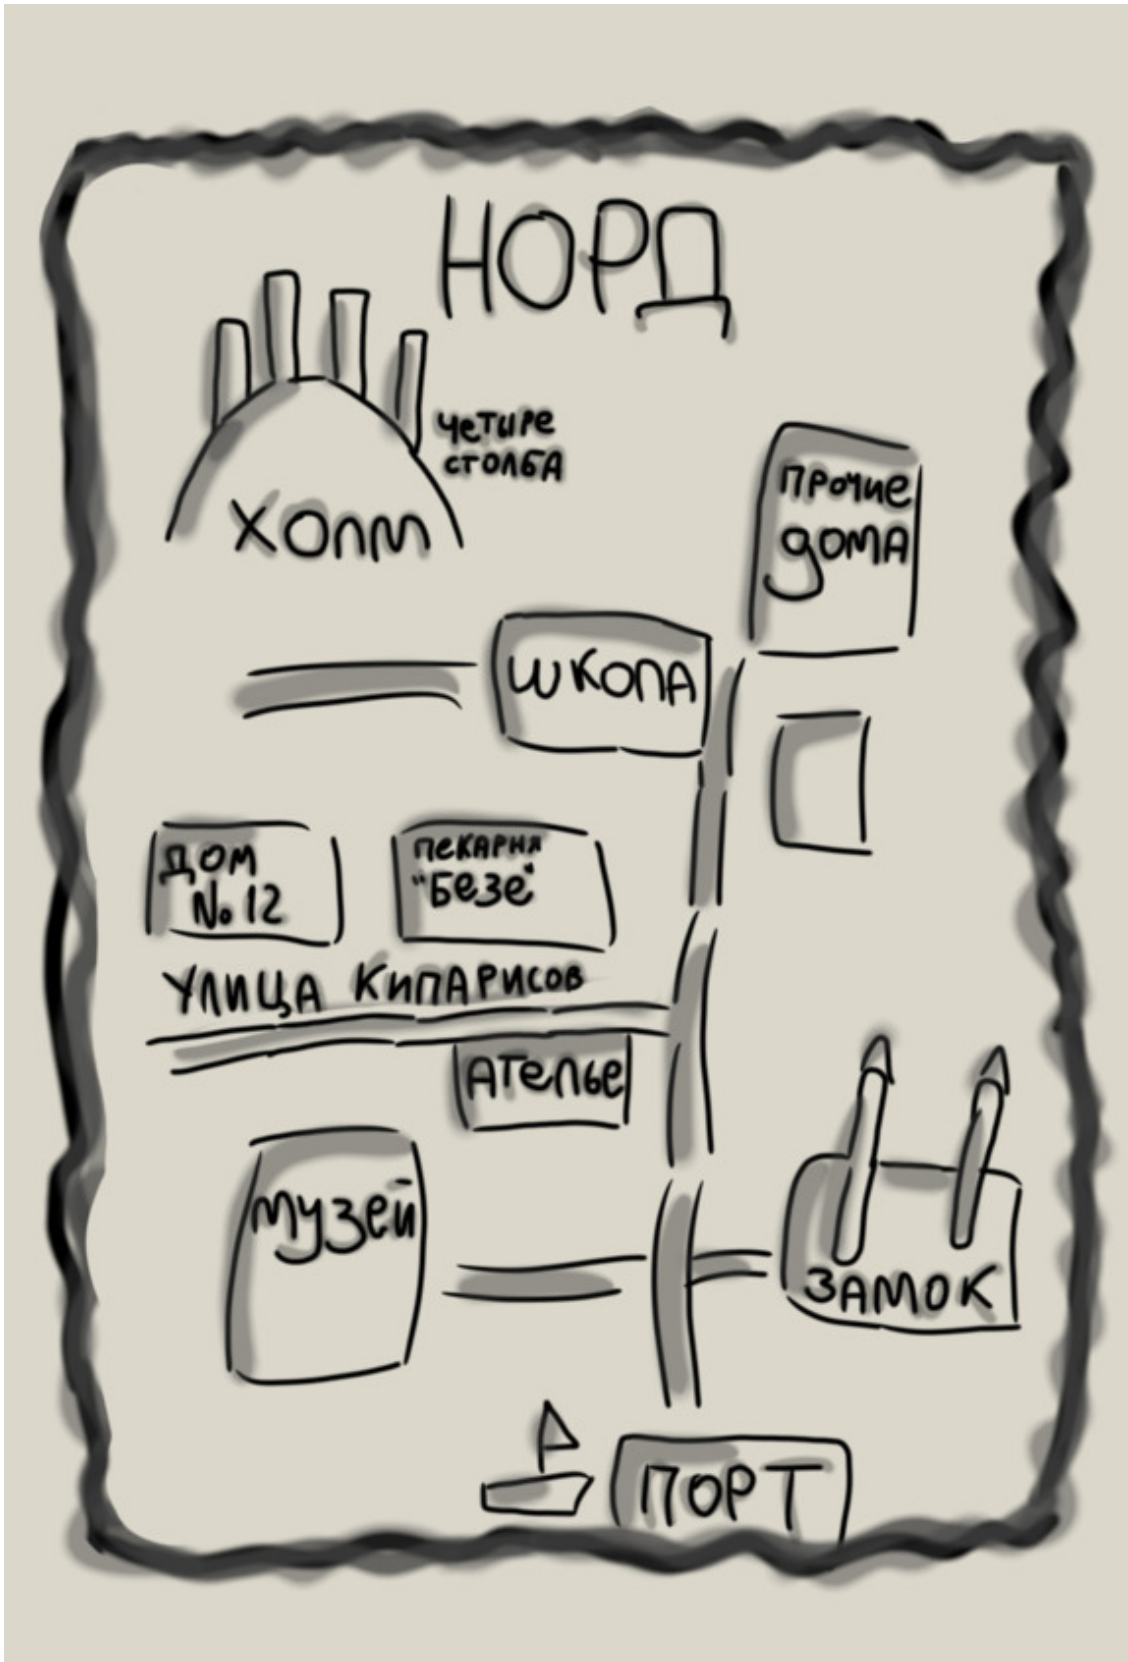 НОРД
ЧЕТЫРЕ
СТОЛБА
ХОЛМ
ПРОЧИЕ
ДОМА
ШКОЛА
ДОМ
№ 12
ПЕКАРНЯ
"БЕЗЕ"
УЛИЦА КИПАРИСОВ
АТЕЛЬЕ
МУЗЕЙ
ЗАМОК
ПОРТ